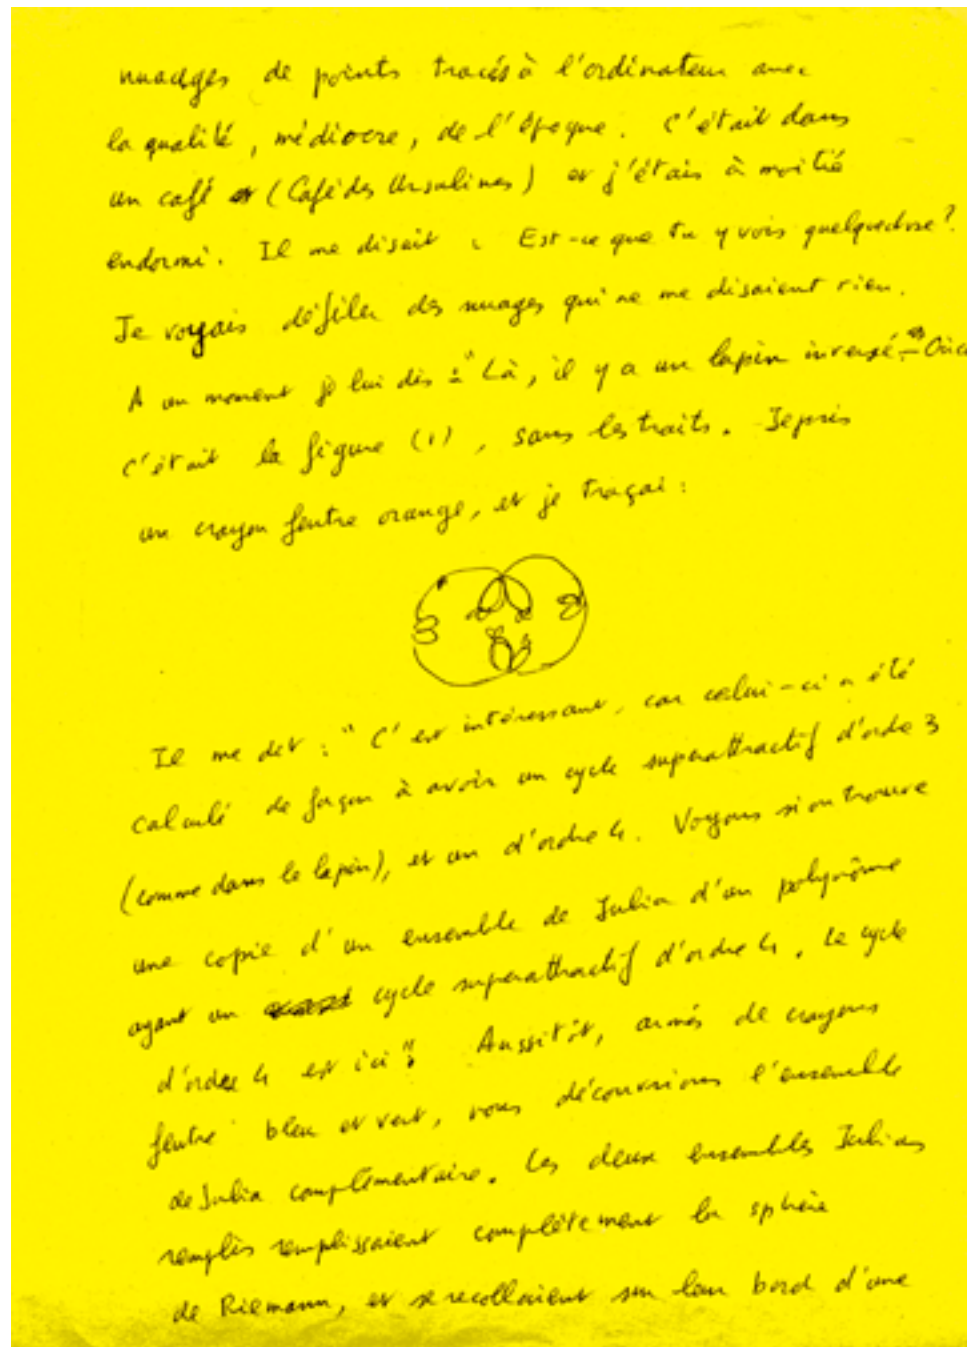 nuages de points tracés à l'ordinateur avec
la qualité, médiocre, de l'époque. C'était dans
un café (Café des Ursulines) et j'étais à moitié
endormi. Il me disait : Est-ce que tu y vois quelquechose?
Je voyais défiler des nuages qui ne me disaient rien.
A un moment je lui dis : "Là, il y a un lapin inversé."
C'était la figure (1), sans les traits. Je pris
un crayon feutre orange, et je traçai :
Il me dit : "C'est intéressant, car celui-ci a été
calculé de façon à avoir un cycle superattractif d'ordre 3
(comme dans le lapin), et un d'ordre 4. Voyons si on trouve
une copie d'un ensemble de Julia d'un polynôme
ayant un cycle superattractif d'ordre 4. Le cycle
d'ordre 4 est ici". Aussitôt, armés de crayons
feutre bleu et vert, nous découvrions l'ensemble
de Julia complémentaire. Les deux ensembles Julias
remplis remplissaient complètement la sphère
de Riemann, et se recollaient sur leur bord d'une